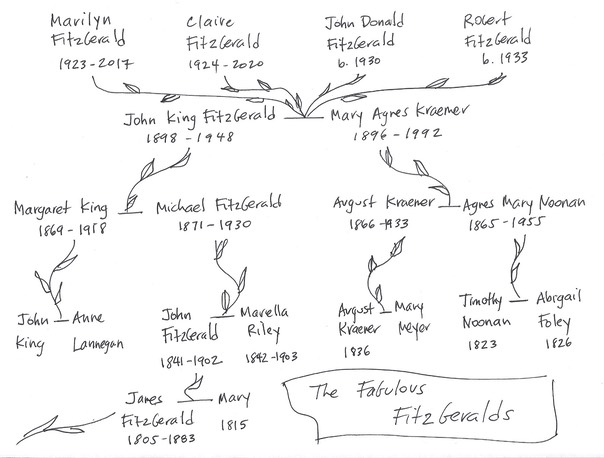 Marilyn
FitzGerald
1923-2017
Claire
FitzGerald
1924-2020
John Donald
FitzGerald
b. 1930
Robert
FitzGerald
b. 1933
John King FitzGerald
1898-1948
Mary Agnes Kraemer
1896-1992
Margaret King
1869-1918
Michael FitzGerald
1871-1930
August Kraemer
1866-1933
Agnes Mary Noonan
1865-1955
John
King
Anne
Lannegan
John
FitzGerald
1841-1902
Marella
Riley
1842-1903
August
Kraemer
1836
Mary
Meyer
Timothy
Noonan
1823
Abigail
Foley
1826
James
FitzGerald
1805-1883
Mary
1815
The Fabulous
FitzGeralds